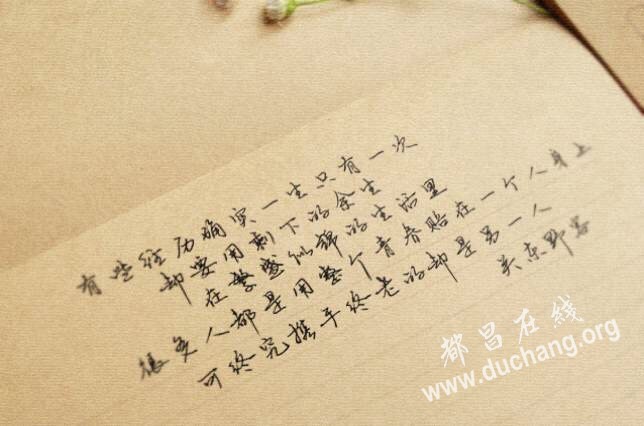 有些经历确实一生只有一次
却要用剩下的余生
在繁盛似锦的生活里
很多人都是用整个青春赔在一个人身上
可终究携手终老的却是另一人
关东野客
都昌在线
www.duchang.org